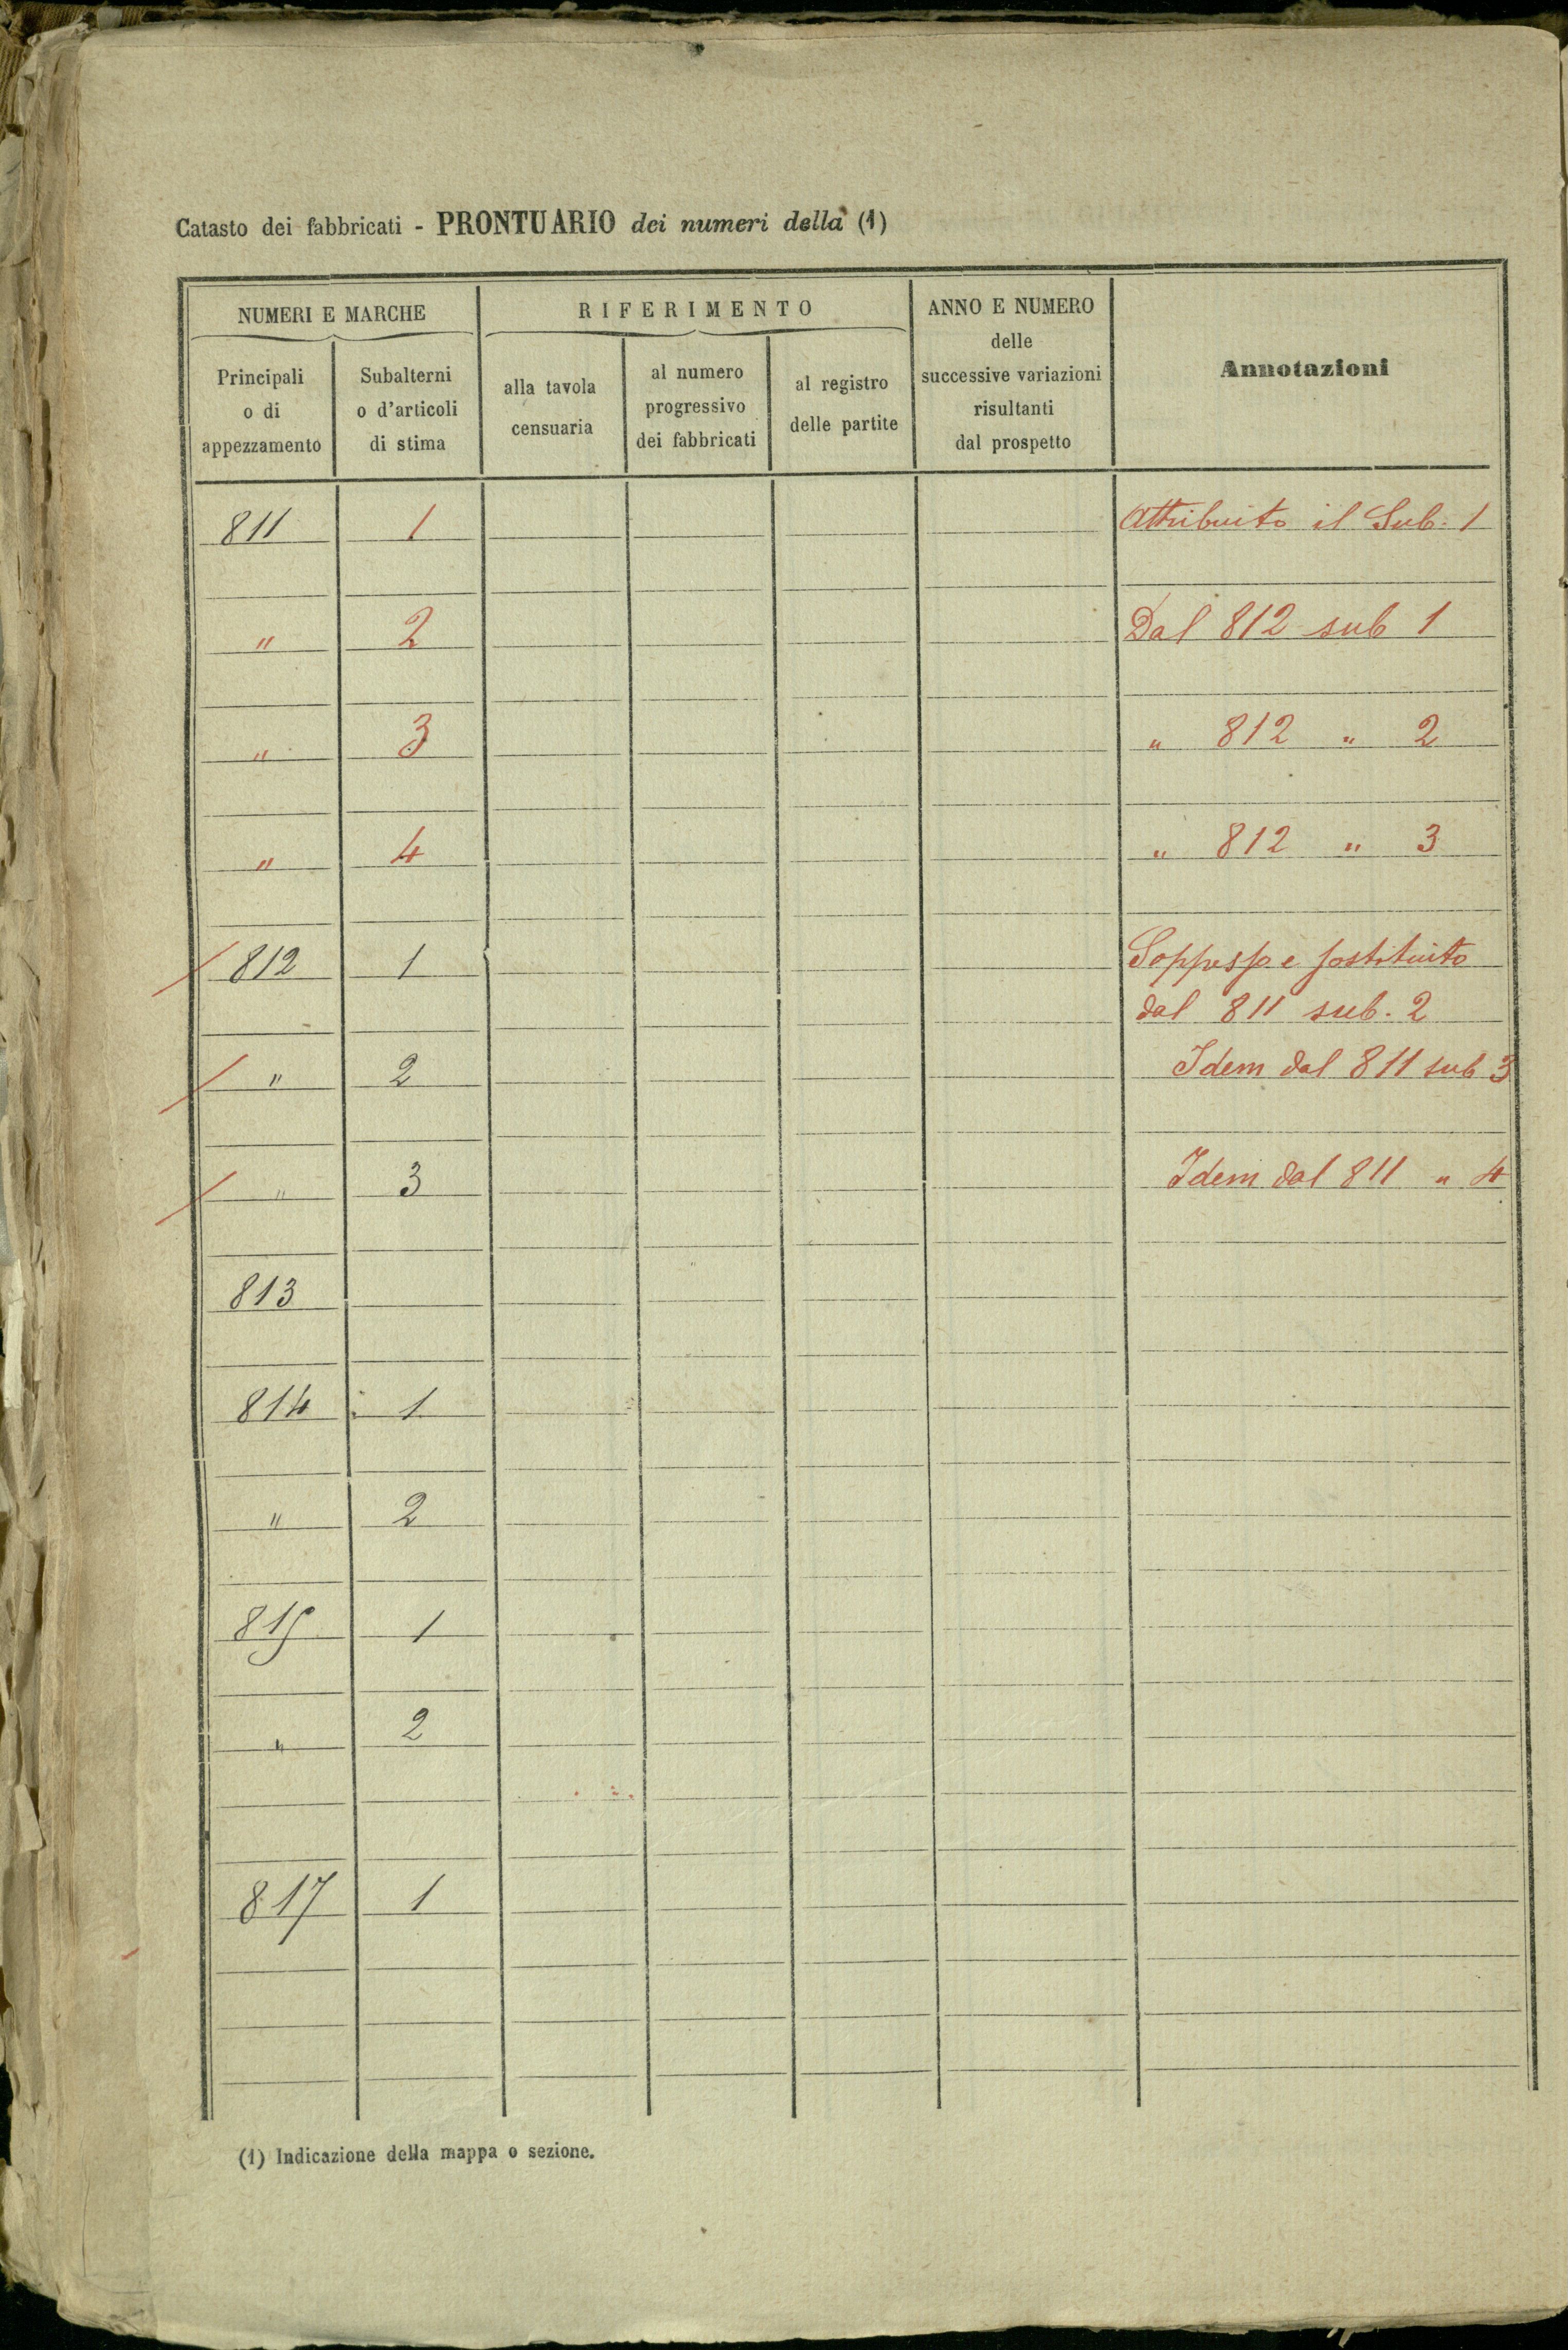 Catasto dei fabbricati - PRONTUARIO dei numeri della (1)
NUMERI E MARCHE
RIFERIMENTO
ANNO E NUMERO
delle
successive variazioni
risultanti
dal prospetto
Annotazioni
Principali
o di
appezzamento
Subalterni
o d'articoli
di stima
alla tavola
censuaria
al numero
progressivo
dei fabbricati
al registro
delle partite
811 1 Attribuito il Sub. 1
" 2 Dal 812 sub 1
" 3 " 812 " 2
" 4 " 812 " 3
812 1 Soppresso e sostituito
dal 811 sub. 2
" 2 Idem dal 811 sub 3
" 3 Idem dal 811 " 4
813
814 1
" 2
815 1
" 2
817 1
(1) Indicazione della mappa o sezione.